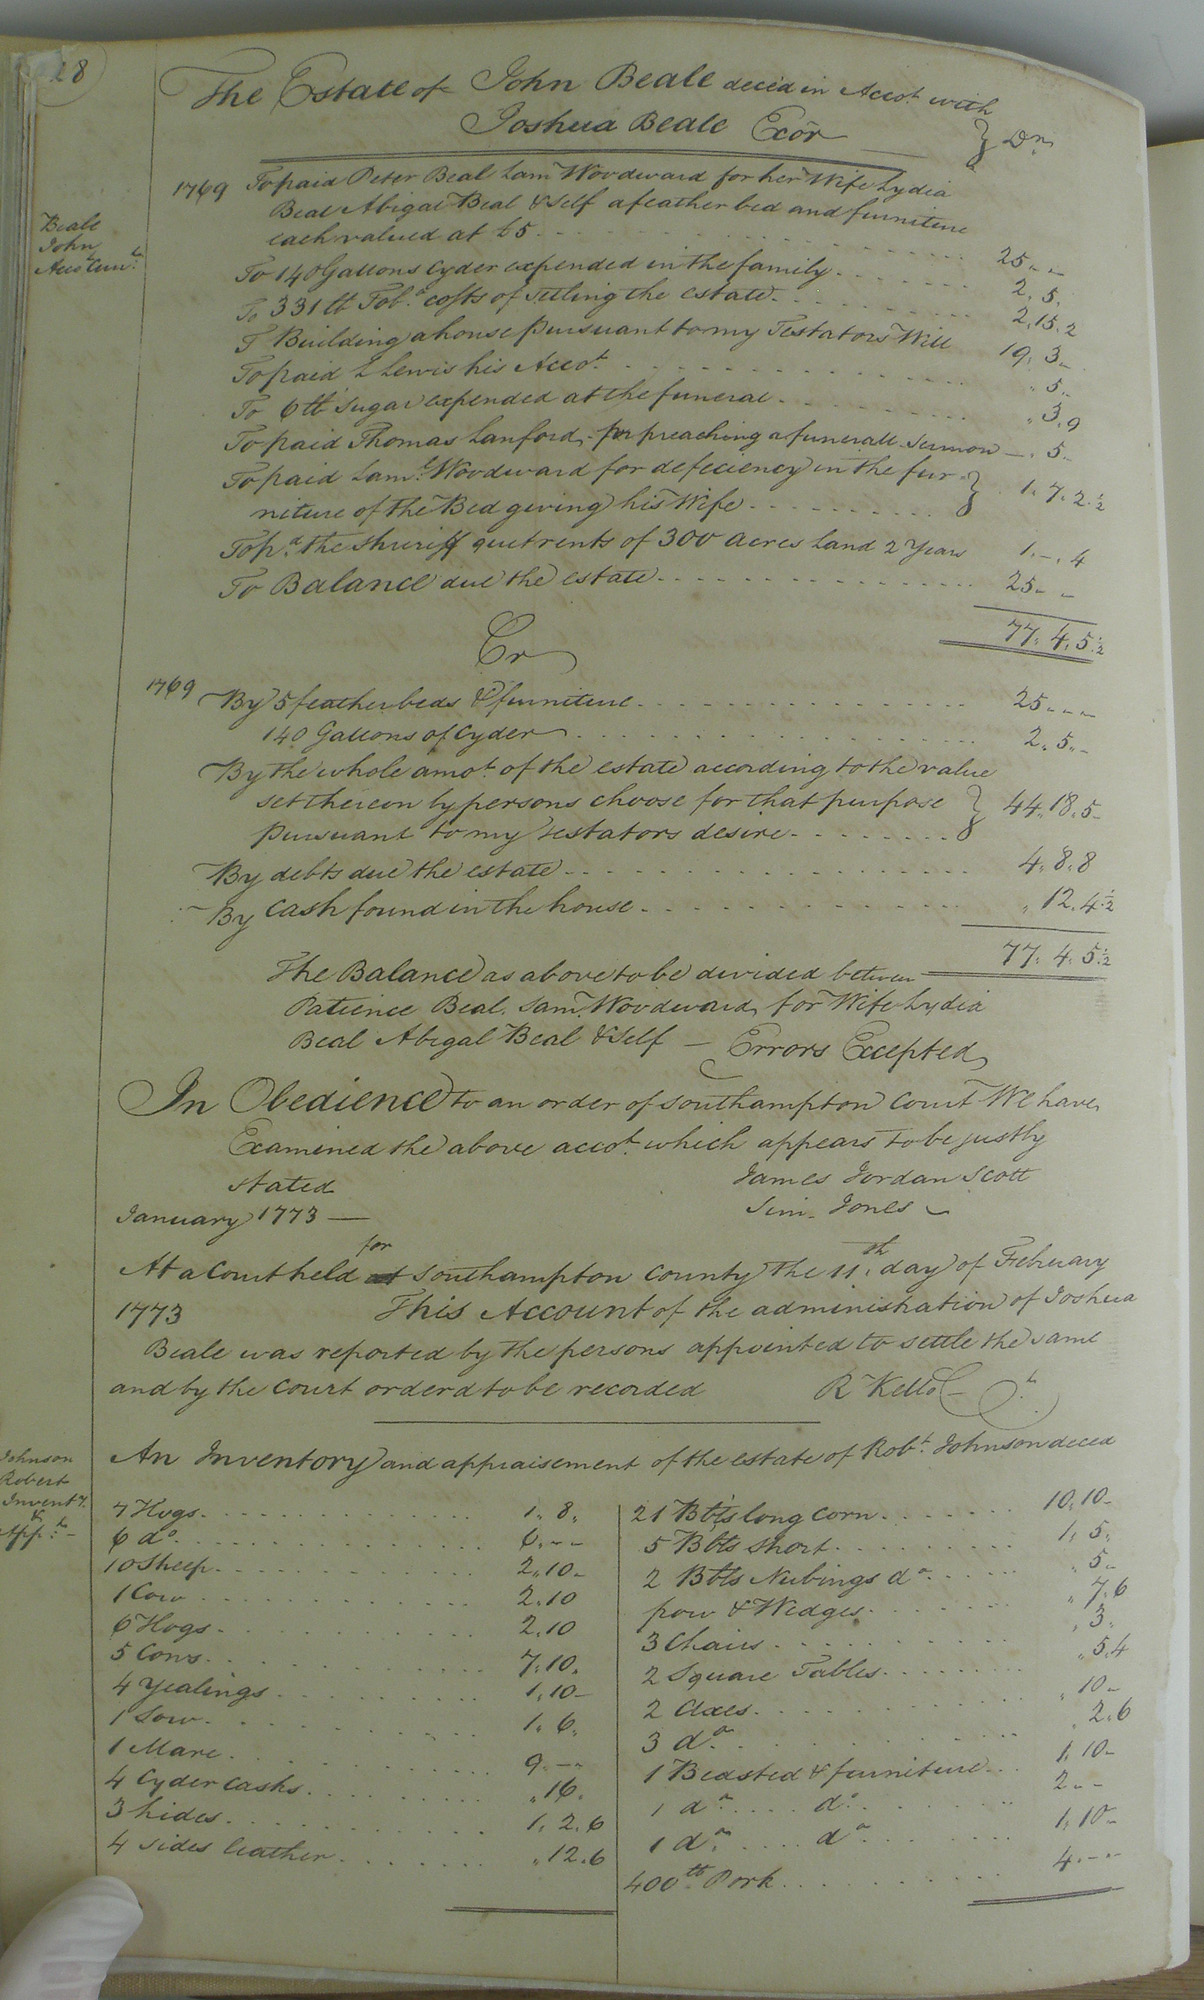 28
The Estate of John Beale deced in Accot. with
Joshua Beale Exor } Dr
Beale
John
Accot Curt.
1769 To paid Peter Beal Sam Woodward for her Wife Lydia
Beal Abigal Beal & self a feather bed and furniture
each valued at £5 25 " "
To 140 Gallons Cyder expended in the family 2. 5.
To 331 lb Tobo. costs of setling the estate 2. 15. 2
T Building a house pursuant to my Testators Will 19. 3.
To paid L Lewis his Accot. " 5.
To 6 lb Sugar expended at the funeral " 3. 9
To paid Thomas Lanford for preaching a funerall Sermon " 5.
To paid Saml. Woodward for defeciency in the fur- } 1. 7. 2 1/2
niture of the Bed giveing his Wife
To pd. the Sheriff quetrents of 300 acres Land 2 Years 1. -. 4
To Balance due the estate 25 - -
77. 4. 5 1/2
Cr
1769 By 5 feather beds & furniture 25 - - -
140 Gallons of Cyder 2. 5. -
By the whole amot. of the estate according to the value
set thereon by persons choose for that purpose } 44. 18. 5 -
pursuant to my testators desire
By debts due the estate 4. 8. 8
By Cash found in the house " 12. 4 1/2
77. 4. 5 1/2
The Balance as above to be divided between
Patience Beal. Sam. Woodward, for Wife Lydia
Beal Abigal Beal & self — Errors Excepted
In Obedience to an order of Southampton Court We have
Examined the above accot. which appears to be justly
stated
James Jordan Scott
January 1773 —
Sim. Jones
for
At a Court held at Southampton County the 11th. day of February
1773 This Account of the administration of Joshua
Beale was reported by the persons appointed to settle the same
and by the Court orderd to be recorded R Kello C
An Inventory and appraisement of the estate of Robt. Johnson deced
Johnson
Robert
Inventy.
&
Appt. -
7 Hogs 1. 8.
6 do. 6. - -
10 Sheep 2. 10 -
1 Cow 2. 10
6 Hogs 2. 10
5 Cows 7. 10.
4 Yealings 1. 10 -
1 Sow 1. 6.
1 Mare 9 - -
4 Cyder Casks " 16.
3 hides 1. 2. 6
4 sides leather " 12. 6
21 Bbls long Corn 10. 10 -
5 Bbls short 1. 5.
2 Bbls Nubings do. " 5 -
pow & Wedges " 7. 6
3 Chairs " 3.
2 Square Tables " 5. 4
2 Axes " 10 -
3 do. " 2. 6
1 Beasted & furniture 1. 10 -
1 do. do. 2 - -
1 do. do. 1. 10 -
400 lb Pork 4 - -